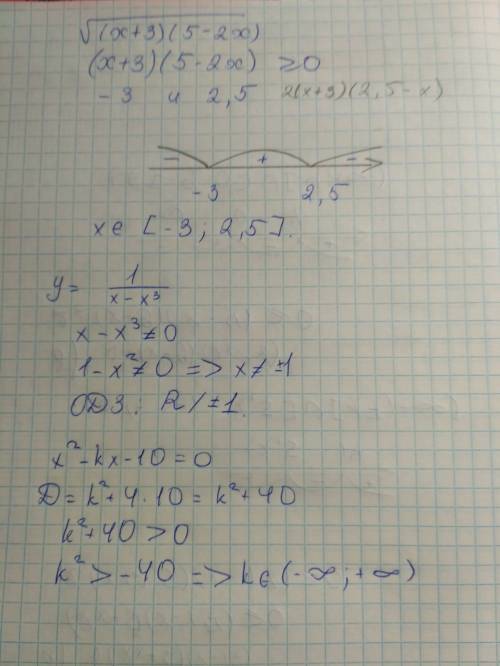 √(x+3)(5-2x)
(x+3)(5-2x) ≥0
-3 и 2,5 2(x+3)(2,5-x)
- + -
-3 2,5
x∈ [-3; 2,5].
y= 1/(x-x³)
x-x³≠0
1-x²≠0 => x≠±1
ОДЗ: R/±1.
x²-kx-10=0
D=k²+4·10=k²+40
k²+40>0
k²>-40 => k∈(-∞;+∞)